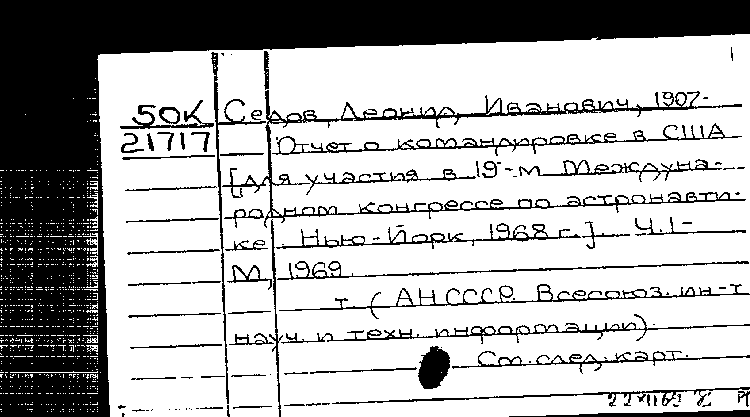 50К Седов, Леонид Иванович, 1907-
21717 Отчет о командировке в США
[для участия в 19-м Междуна-
родном конгрессе по астронавти-
ке. Нью-Йорк, 1968 г.]. Ч.1-
М, 1969.
т. (АН СССР. Всесоюз. ин-т
науч. и техн. информации).
См. след. карт.